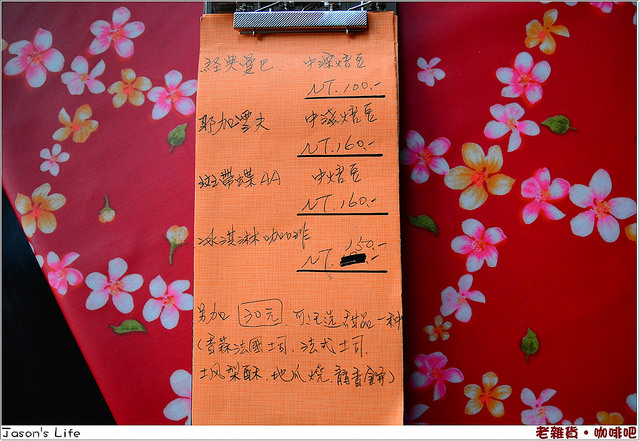 經典曼巴 中深焙豆
NT.100.-
耶加雪夫 中淺焙豆
NT.160.-
中焙豆
NT.160.-
冰淇淋咖啡 150.-
NT.
另加 30元 可任選甜品一種
(香蒜法國土司.法式土司.
土鳳梨酥.地瓜燒.
Jason's Life
老雜貨·咖啡吧